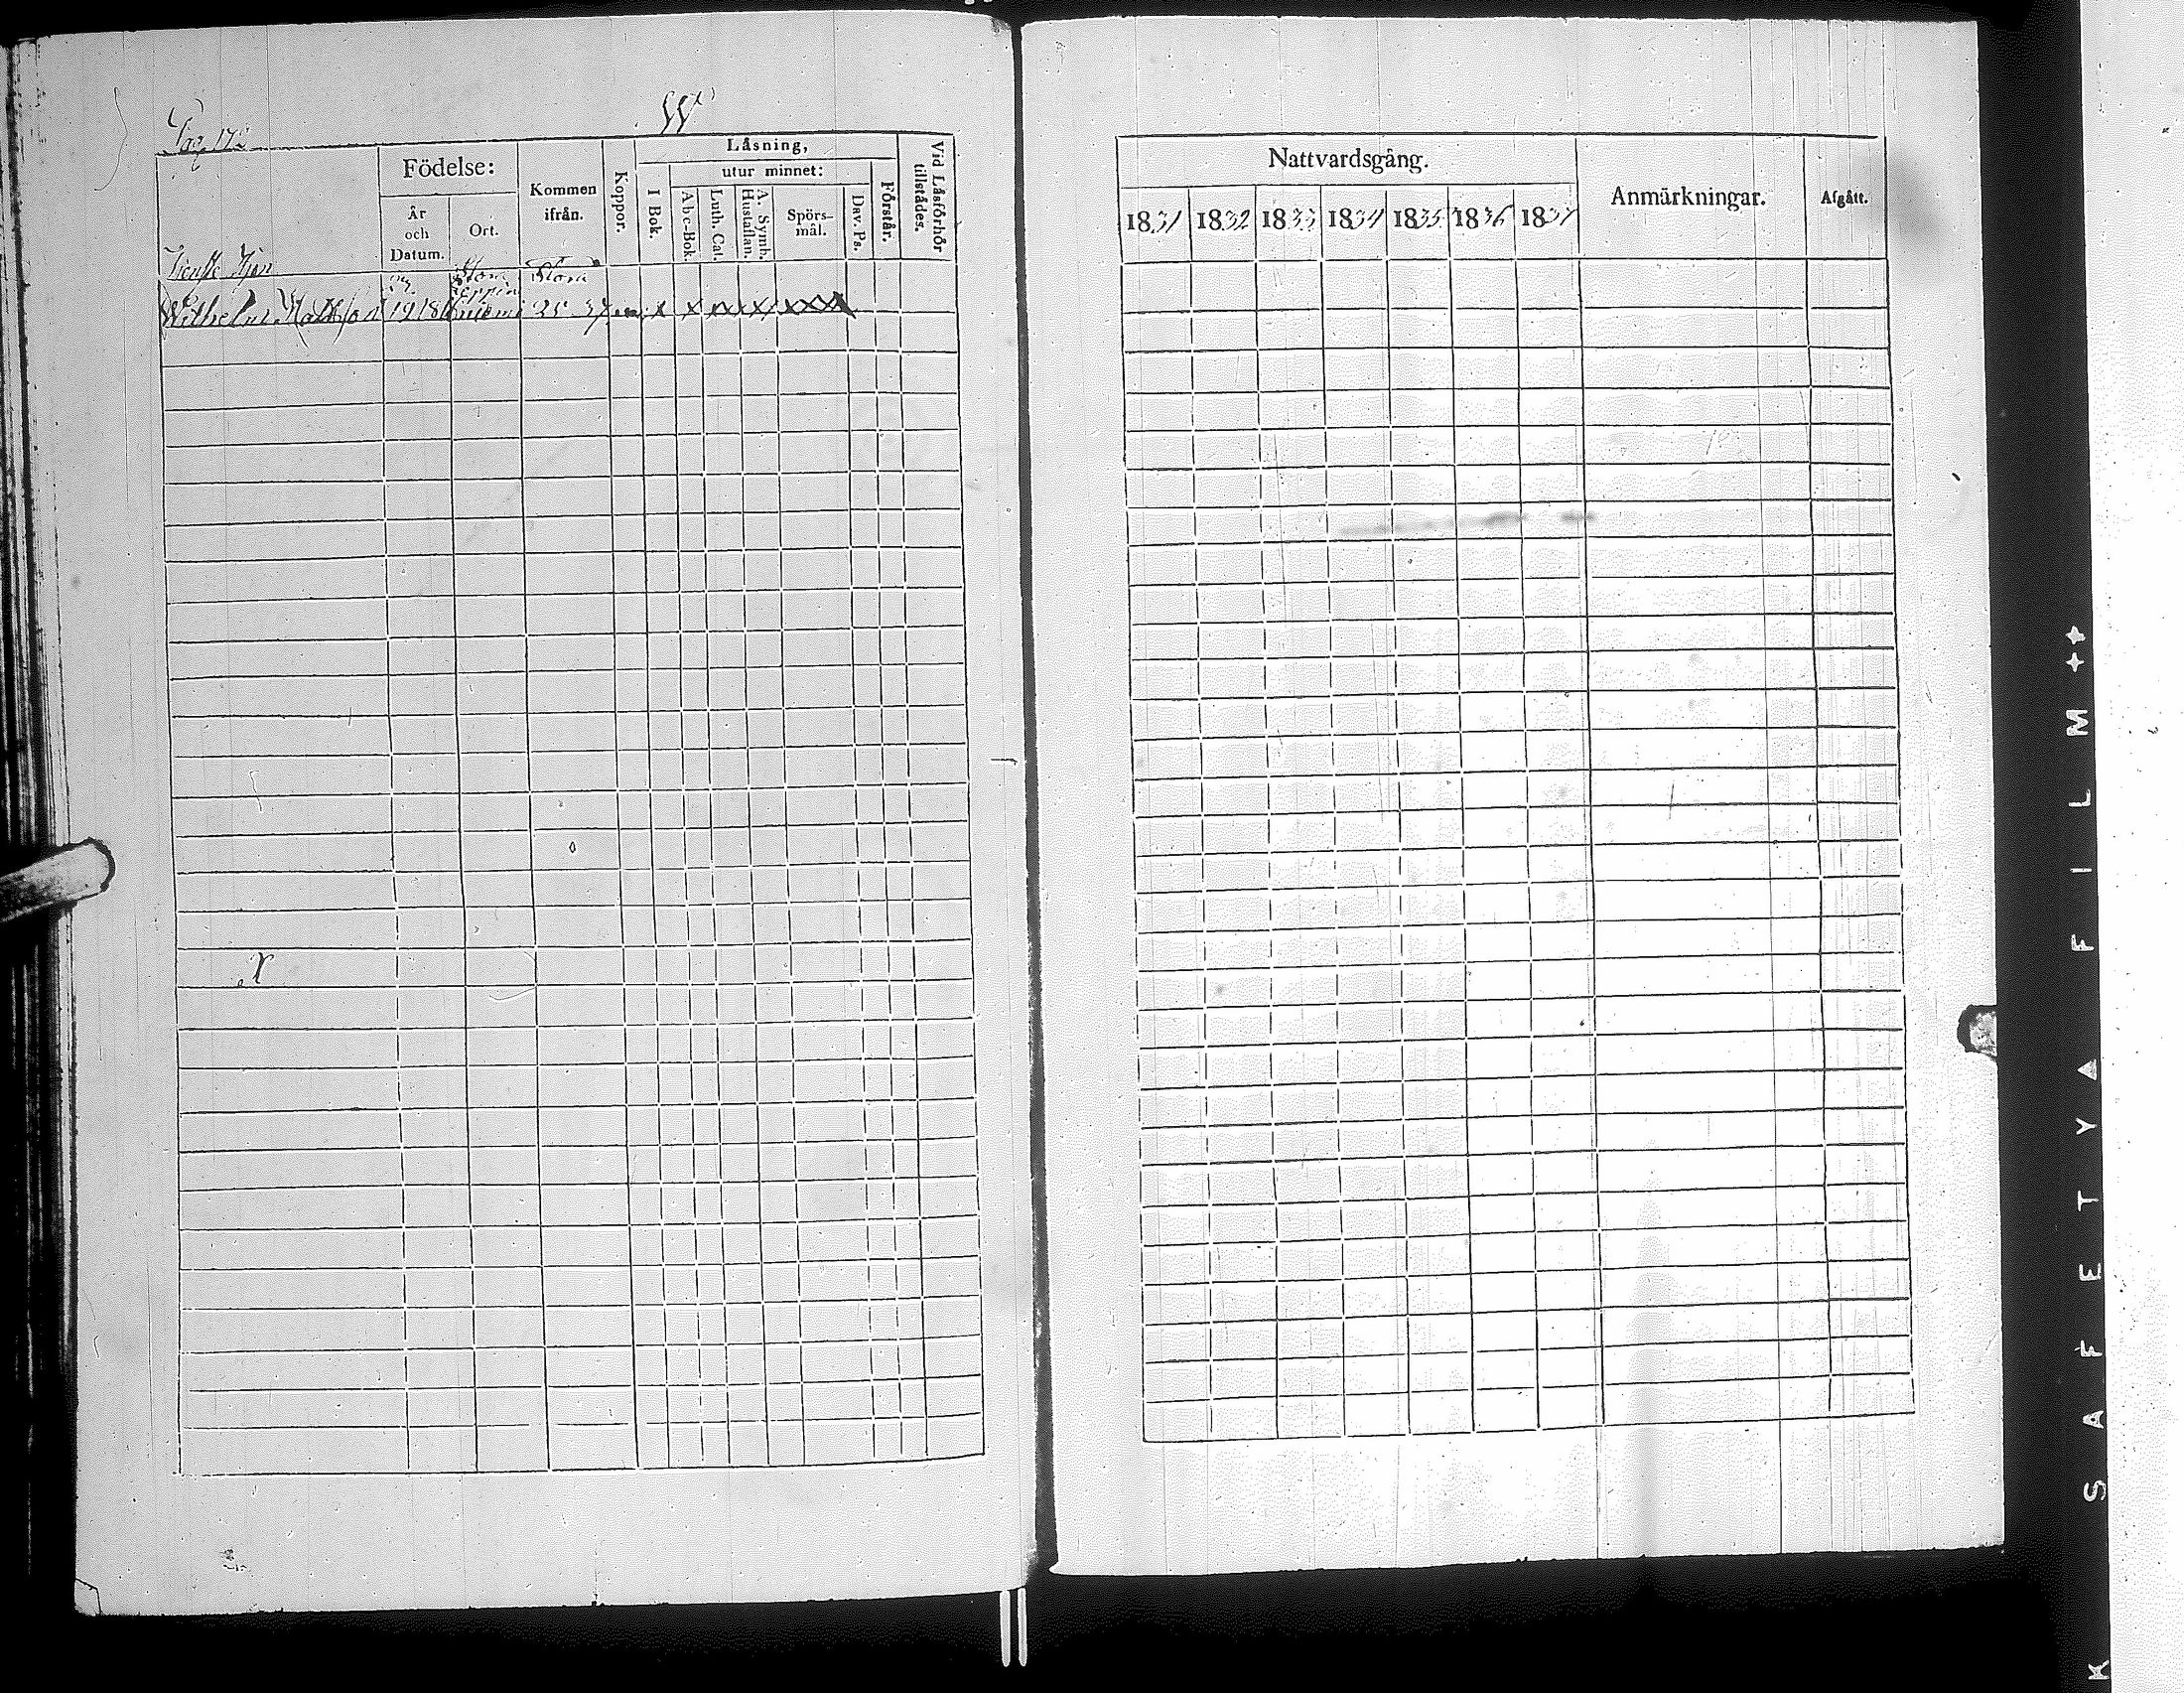 Pag. 172
Födelse:
Kommen ifrån.
Koppor.
Läsning,
utur minnet:
Vid Läsförhör tillstädes.
År och Datum.
Ort.
I Bok.
Abc-Bok.
Luth. Cat.
A. Symb. Hustaflan.
Spörs-mål.
Dav. Ps.
Förstår.
Wilhelm Mattsson
x x xxx xxxx
Nattvardsgång.
Anmärkningar.
Afgått.
1831 1832 1833 1834 1835 1836 1837
K SAFETY FILM